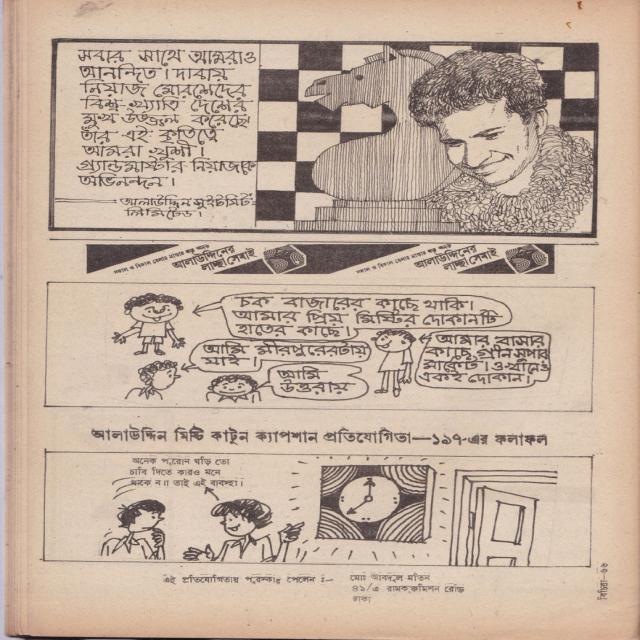 সবার সাথে আমরাও
আনন্দিত। দাবায়
নিয়াজ মোরশেদের
বিশ্ব খ্যাতি দেশের
মুখ উজ্জ্বল করেছে।
তাঁর এই কৃতিত্বে
আমরা খুশী।
গ্র্যান্ডমাস্টার নিয়াজকে
অভিনন্দন।
আলাউদ্দিন সুইটমিট
লিমিটেড।
আলাউদ্দিনের
লাচ্ছা সেমাই
আলাউদ্দিনের
লাচ্ছা সেমাই
চক বাজারের কাছে থাকি।
আমার প্রিয় মিষ্টির দোকানটি
হাতের কাছে।
আমি মীরপুরেরটায়
যাই।
আমি
উত্তরায়
আমার বাসার
কাছে গ্রীন সুপার
মার্কেট। ওখানেও
একই দোকান।
আলাউদ্দিন মিষ্টি কার্টুন ক্যাপশান প্রতিযোগিতা—১৯৭-এর ফলাফল
অনেক পুরোন ঘড়ি তো
চাবি দিতে কারও মনে
থাকে না। তাই এই ব্যবস্থা।
এই প্রতিযোগিতায় পুরস্কার পেলেন :—
মোঃ আবদুল মতিন
৪১/এ রামকৃষ্ণমিশন রোড
ঢাকা
বিচিত্রা—৬৬